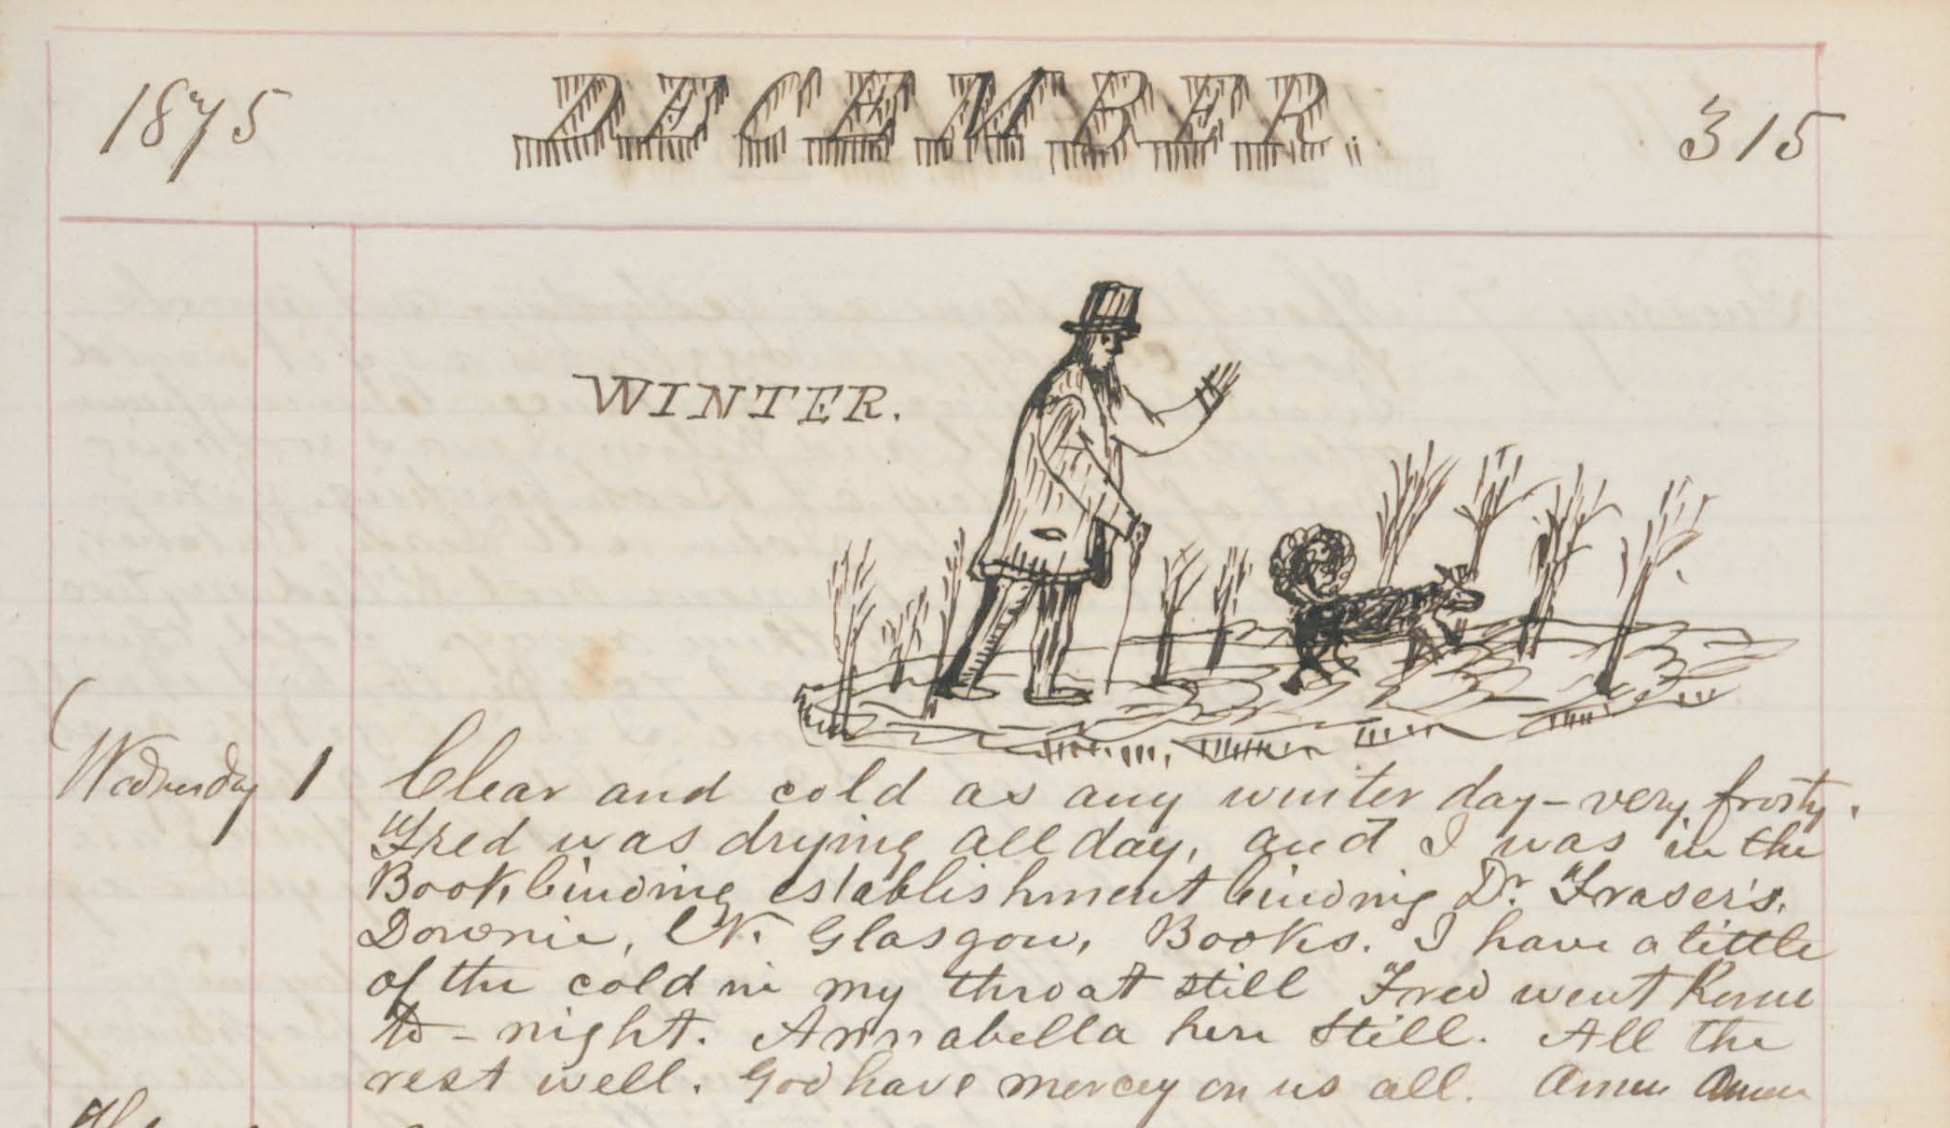 1875 DECEMBER. 315
WINTER.
Wednesday 1 Clear and cold as any winter day - very frosty.
Fred was drying all day, and I was in the
Bookbinding establishment binding Dr. Fraser's.
Downie, N. Glasgow, Books. I have a little
of the cold in my throat still Fred went home
to-night. Annabella here still. All the
rest well. God have mercy on us all. Amen Amen